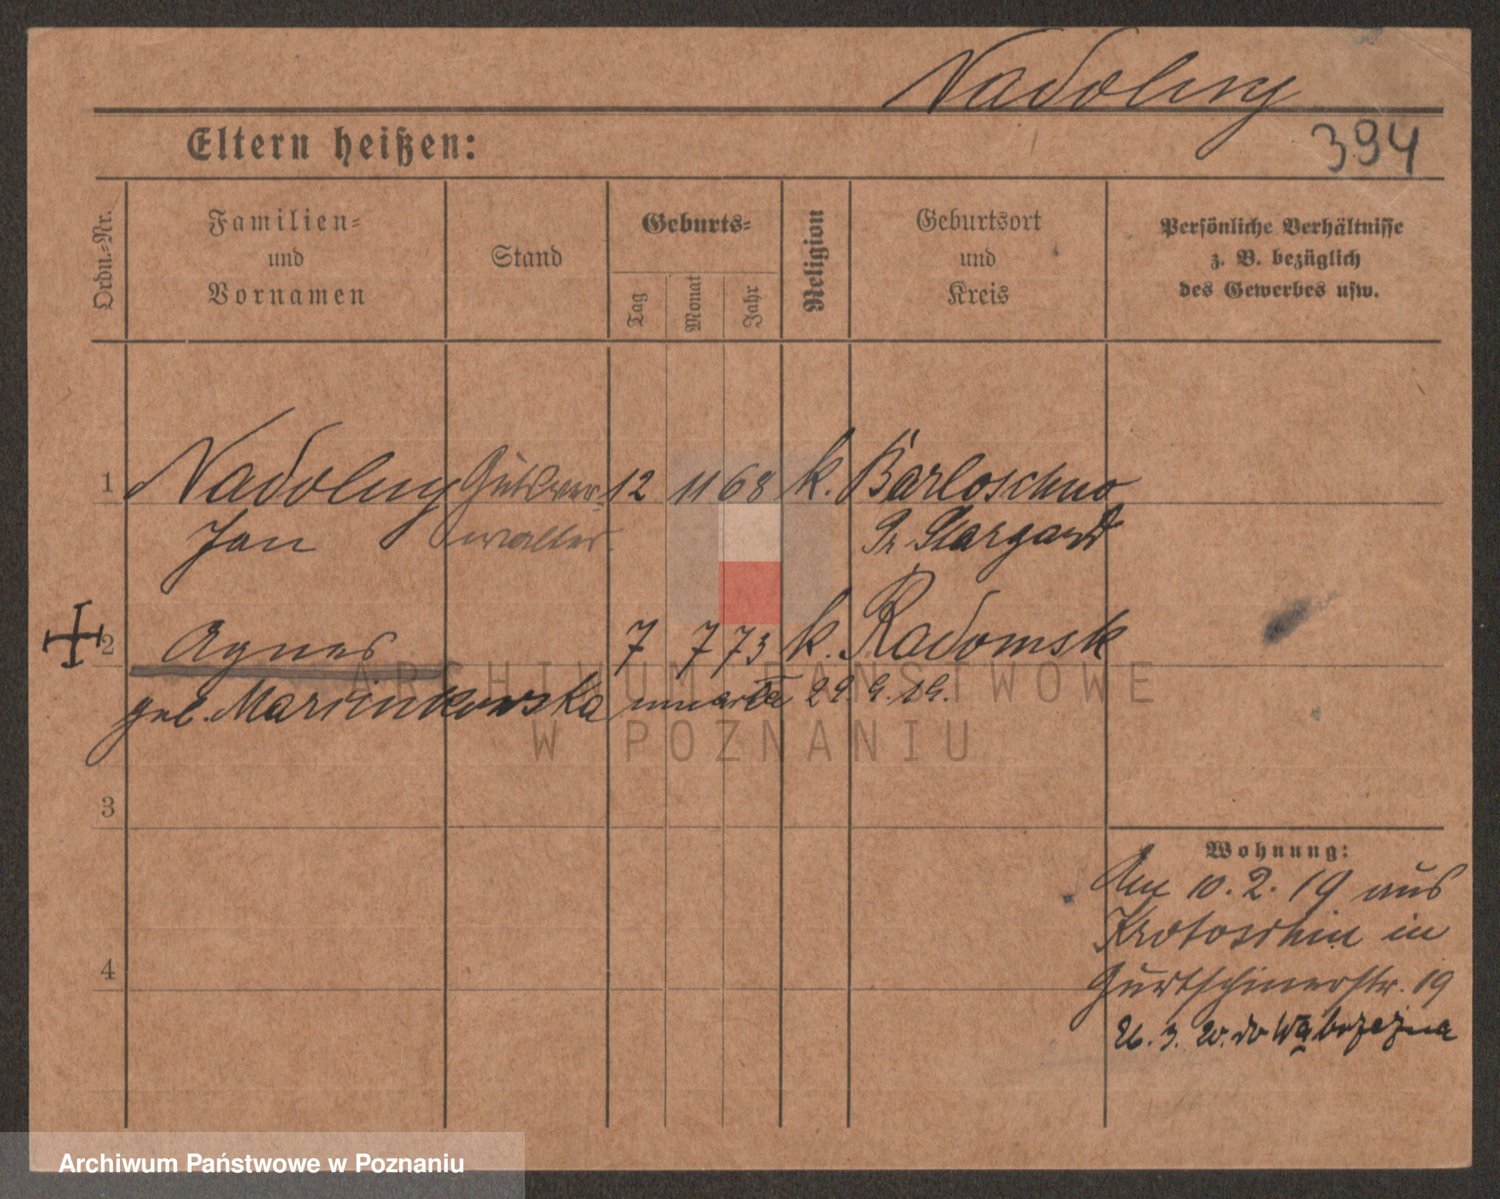 Nadolny
394
Eltern heißen:
Ordn.-Nr.
Familien-
und
Vornamen
Stand
Geburts-
Tag
Monat
Jahr
Religion
Geburtsort
und
Kreis
Persönliche Verhältnisse
z. B. bezüglich
des Gewerbes usw.
1 Nadolny Gutsver- 12 11 68 k. Barloschno
Jan walter. Pr. Stargard
2 Agnes 7 7 73 k. Radomsk
geb. Marcinkowska umarła 29. 9. 19.
3
Wohnung:
Am 10. 2. 19 aus
Krotoschin in
Gurtschinerstr. 19
26. 3. 20. do Wąbrzeźna
4
ARCHIWUM PAŃSTWOWE
W POZNANIU
Archiwum Państwowe w Poznaniu